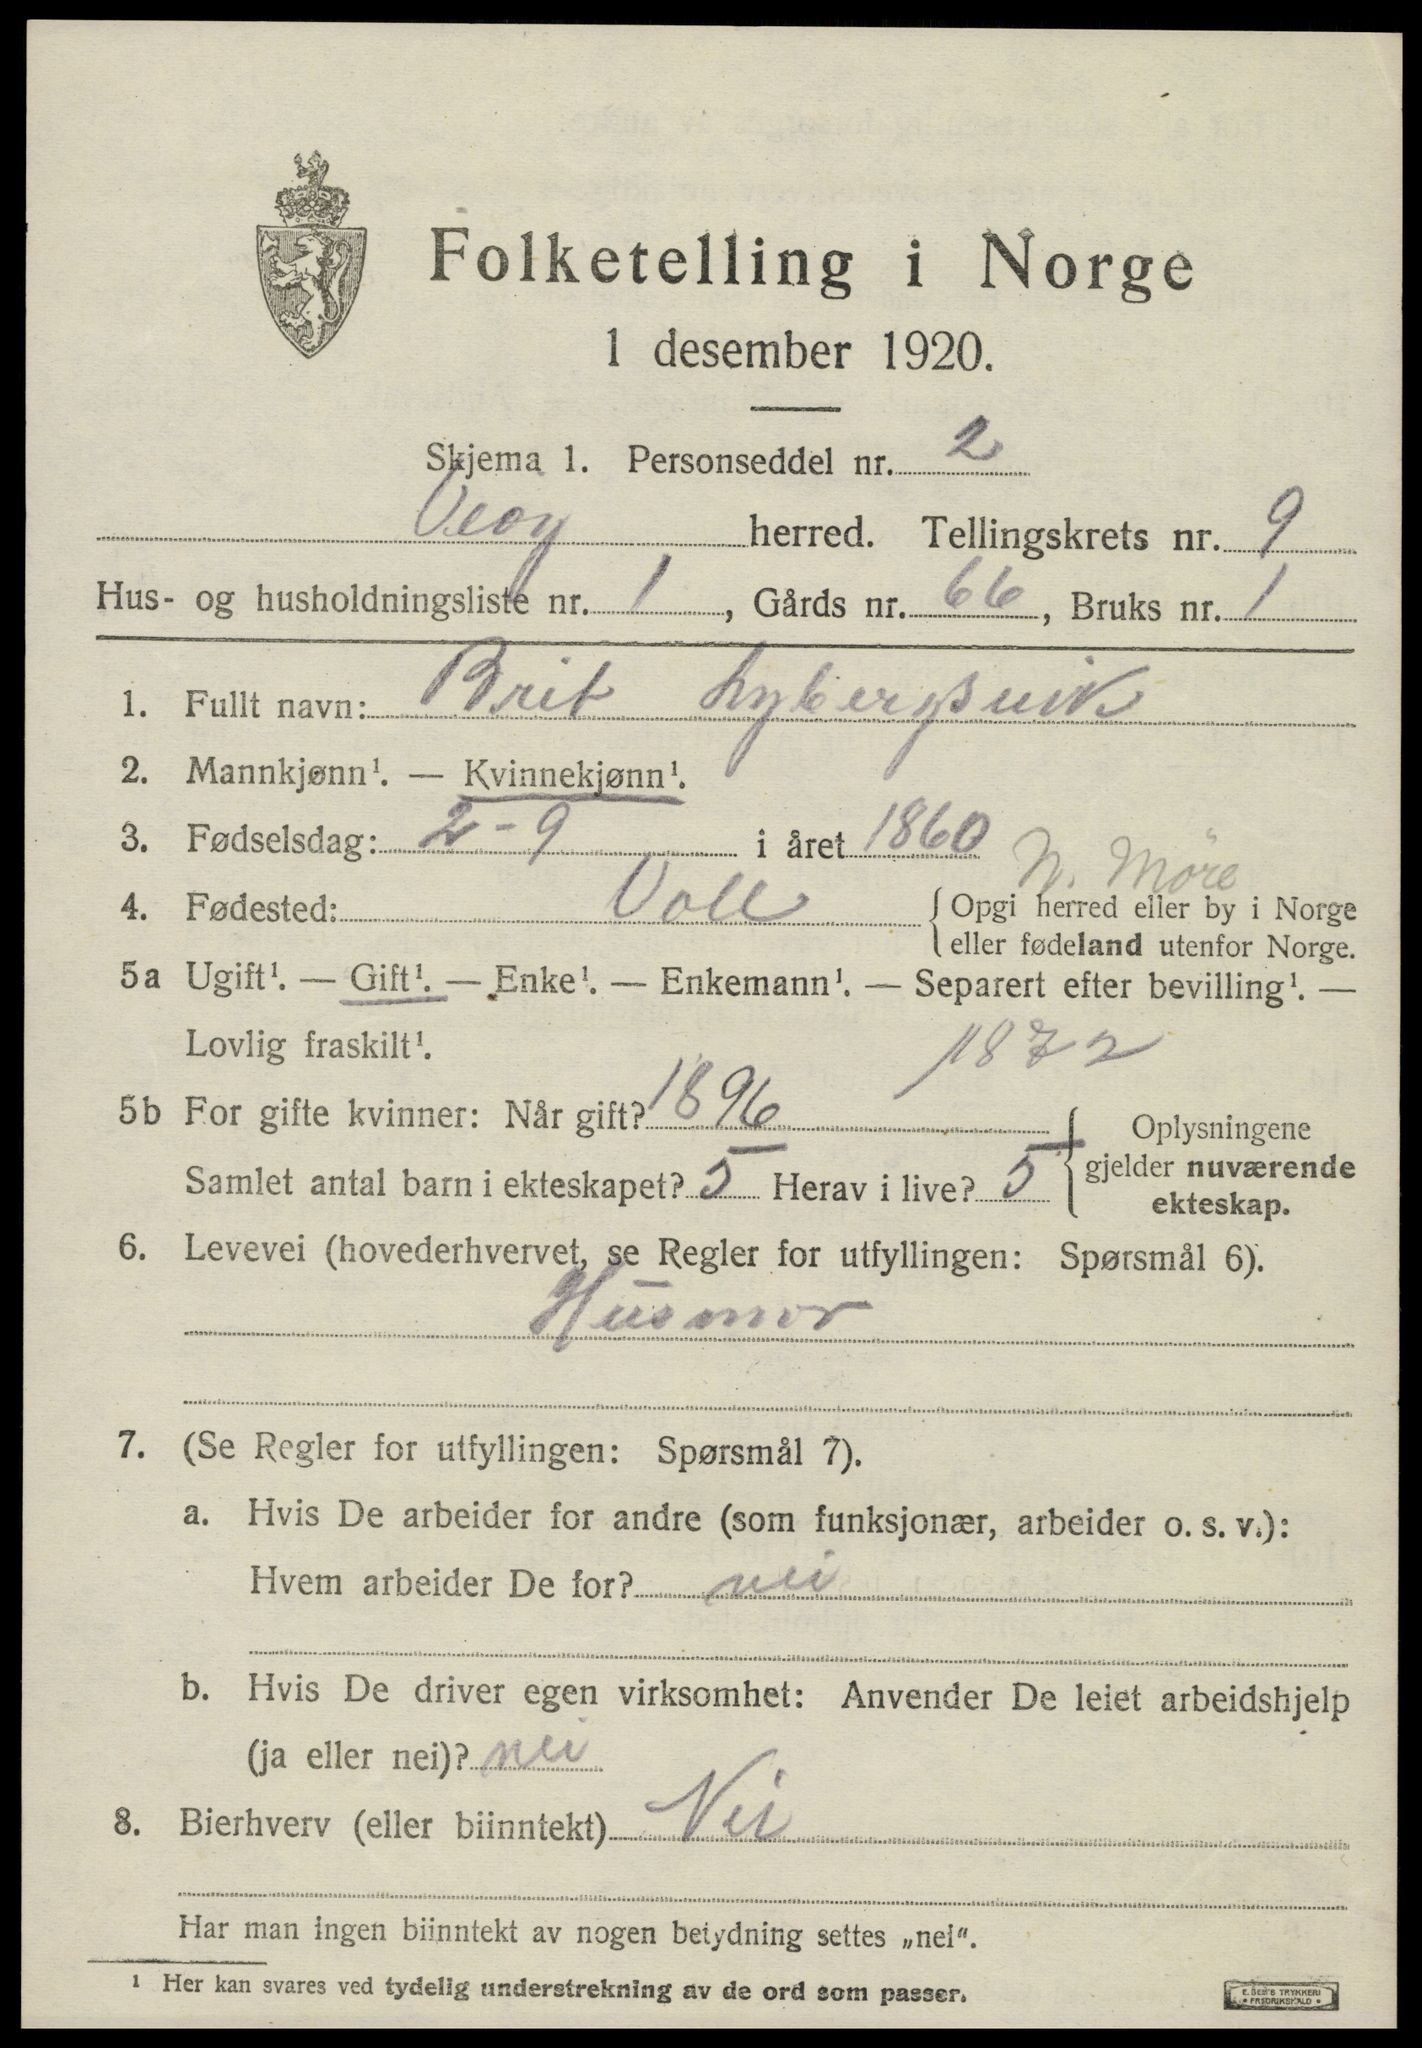 Folketelling i Norge
1 desember 1920.
Skjema 1. Personseddel nr. 2
Veøy herred. Tellingskrets nr. 9
Hus- og husholdningsliste nr. 1, Gårds nr. 66, Bruks nr. 1
1. Fullt navn: Brit Lybergsvik
2. Mannkjønn¹. — Kvinnekjønn¹.
3. Fødselsdag: 2-9 i året 1860
N. Möre
4. Fødested: Voll { Opgi herred eller by i Norge
eller fødeland utenfor Norge.
5a Ugift¹. — Gift¹. — Enke¹. — Enkemann¹. — Separert efter bevilling¹. —
Lovlig fraskilt¹.
5b For gifte kvinner: Når gift? 1896
Samlet antal barn i ekteskapet? 5 Herav i live? 5
Oplysningene
gjelder nuværende
ekteskap.
6. Levevei (hovederhvervet, se Regler for utfyllingen: Spørsmål 6).
Husmor
7. (Se Regler for utfyllingen: Spørsmål 7).
a. Hvis De arbeider for andre (som funksjonær, arbeider o. s. v.):
Hvem arbeider De for? nei
b. Hvis De driver egen virksomhet: Anvender De leiet arbeidshjelp
(ja eller nei)? nei
8. Bierhverv (eller biinntekt) Nei
Har man ingen biinntekt av nogen betydning settes „nei“.
¹ Her kan svares ved tydelig understrekning av de ord som passer.
E. SEM'S TRYKKERI
• FREDRIKSHALD •